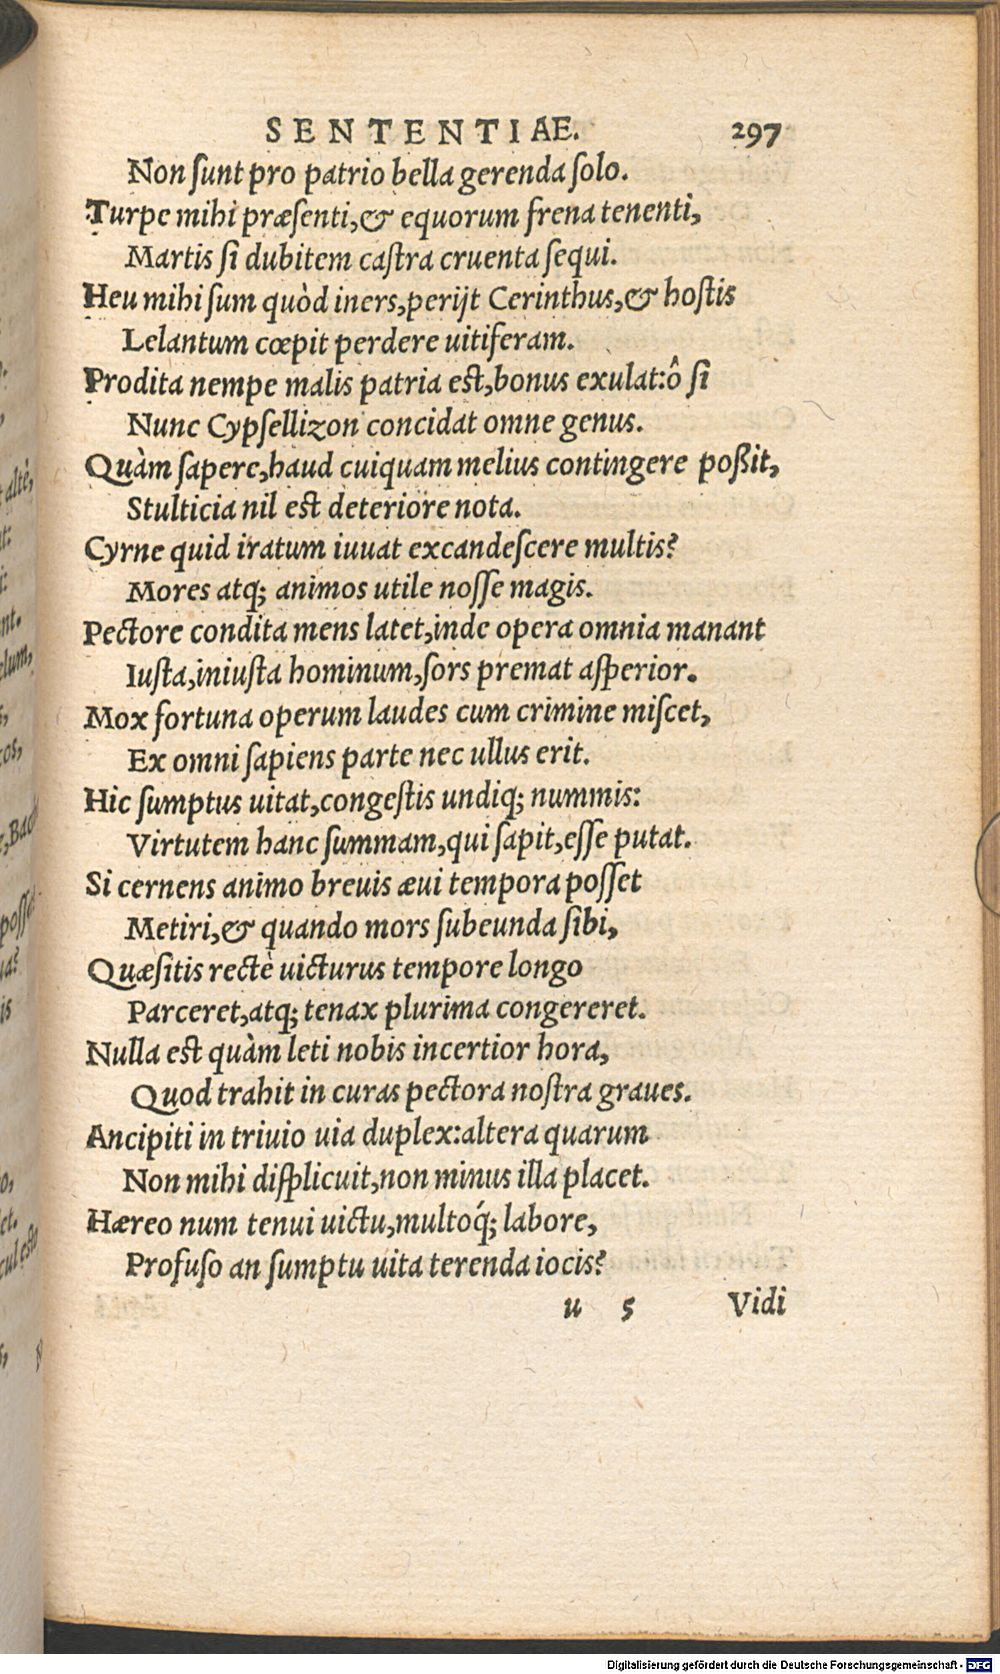 SENTENTIAE. 297
Non ſunt pro patrio bella gerenda ſolo.
Turpe mihi præſenti,& equorum frena tenenti,
Martis ſi dubitem caſtra cruenta ſequi.
Heu mihi ſum quòd iners,perijt Cerinthus,& hoſtis
Lelantum cœpit perdere uitiferam.
Prodita nempe malis patria eſt,bonus exulat:ô ſi
Nunc Cypſellizon concidat omne genus.
Quàm ſapere,haud cuiquam melius contingere poßit,
Stulticia nil eſt deteriore nota.
Cyrne quid iratum iuuat excandeſcere multis?
Mores atq; animos utile noſſe magis.
Pectore condita mens latet,inde opera omnia manant
Iuſta,iniuſta hominum,ſors premat aſperior.
Mox fortuna operum laudes cum crimine miſcet,
Ex omni ſapiens parte nec ullus erit.
Hic ſumptus uitat,congeſtis undiq; nummis:
Virtutem hanc ſummam,qui ſapit,eſſe putat.
Si cernens animo breuis æui tempora poſſet
Metiri,& quando mors ſubeunda ſibi,
Quæſitis rectè uicturus tempore longo
Parceret,atq; tenax plurima congereret.
Nulla eſt quàm leti nobis incertior hora,
Quod trahit in curas pectora noſtra graues.
Ancipiti in triuio uia duplex:altera quarum
Non mihi diſplicuit,non minus illa placet.
Hæreo num tenui uictu,multoq́; labore,
Profuſo an ſumptu uita terenda iocis?
u 5 Vidi
Digitalisierung gefördert durch die Deutsche Forschungsgemeinschaft - DFG